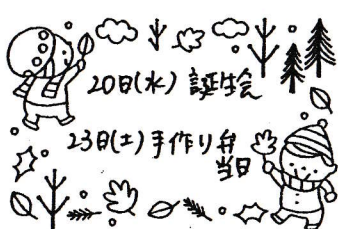 20日(水) 誕生会
23日(土)手作り弁
当日